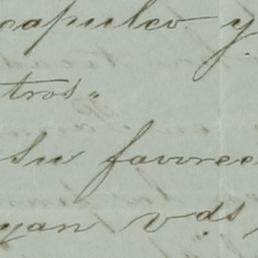 capulco y
tros„
su favorec
gan vds